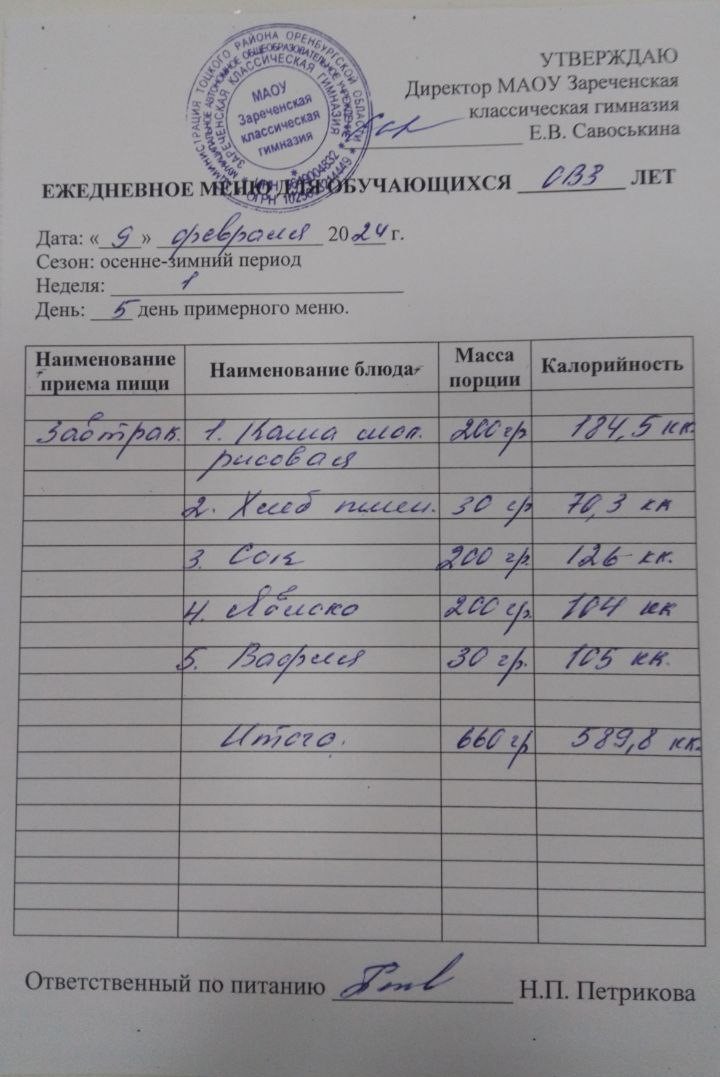 УТВЕРЖДАЮ
Директор МАОУ Зареченская
классическая гимназия
Е.В. Савоськина
АДМИНИСТРАЦИЯ ТОЦКОГО РАЙОНА ОРЕНБУРГСКОЙ ОБЛАСТИ
МУНИЦИПАЛЬНОЕ АВТОНОМНОЕ ОБЩЕОБРАЗОВАТЕЛЬНОЕ УЧРЕЖДЕНИЕ
ЗАРЕЧЕНСКАЯ КЛАССИЧЕСКАЯ ГИМНАЗИЯ
МАОУ
Зареченская
классическая
гимназия
ЕЖЕДНЕВНОЕ МЕНЮ ДЛЯ ОБУЧАЮЩИХСЯ ОВЗ ЛЕТ
Дата: «9» февраля 2024 г.
Сезон: осенне-зимний период
Неделя: 1
День: 5 день примерного меню.
Наименование приема пищи Наименование блюда Масса порции Калорийность
Завтрак. 1. Каша мол. 200 гр 184,5 кк.
рисовая
2. Хлеб пшен. 30 гр 70,3 кк
3. Сок 200 гр. 126 кк.
4. Яблоко 200 гр. 104 кк
5. Вафля 30 гр. 105 кк.
Итого. 660 гр 589,8 кк.
Ответственный по питанию Н.П. Петрикова